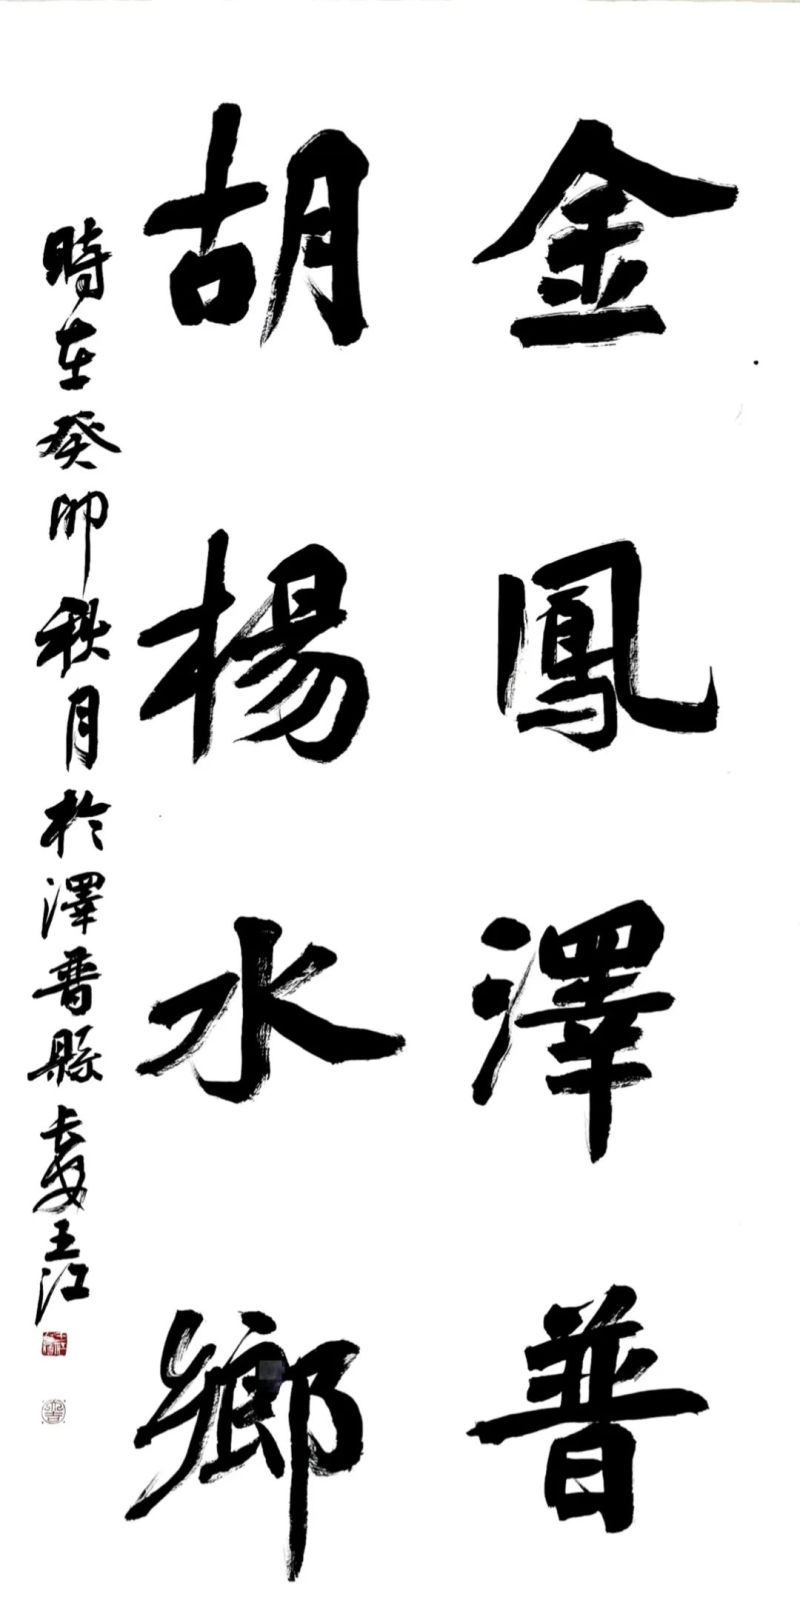 金鳳澤普
胡楊水鄉
時在癸卯秋月於澤普縣王江